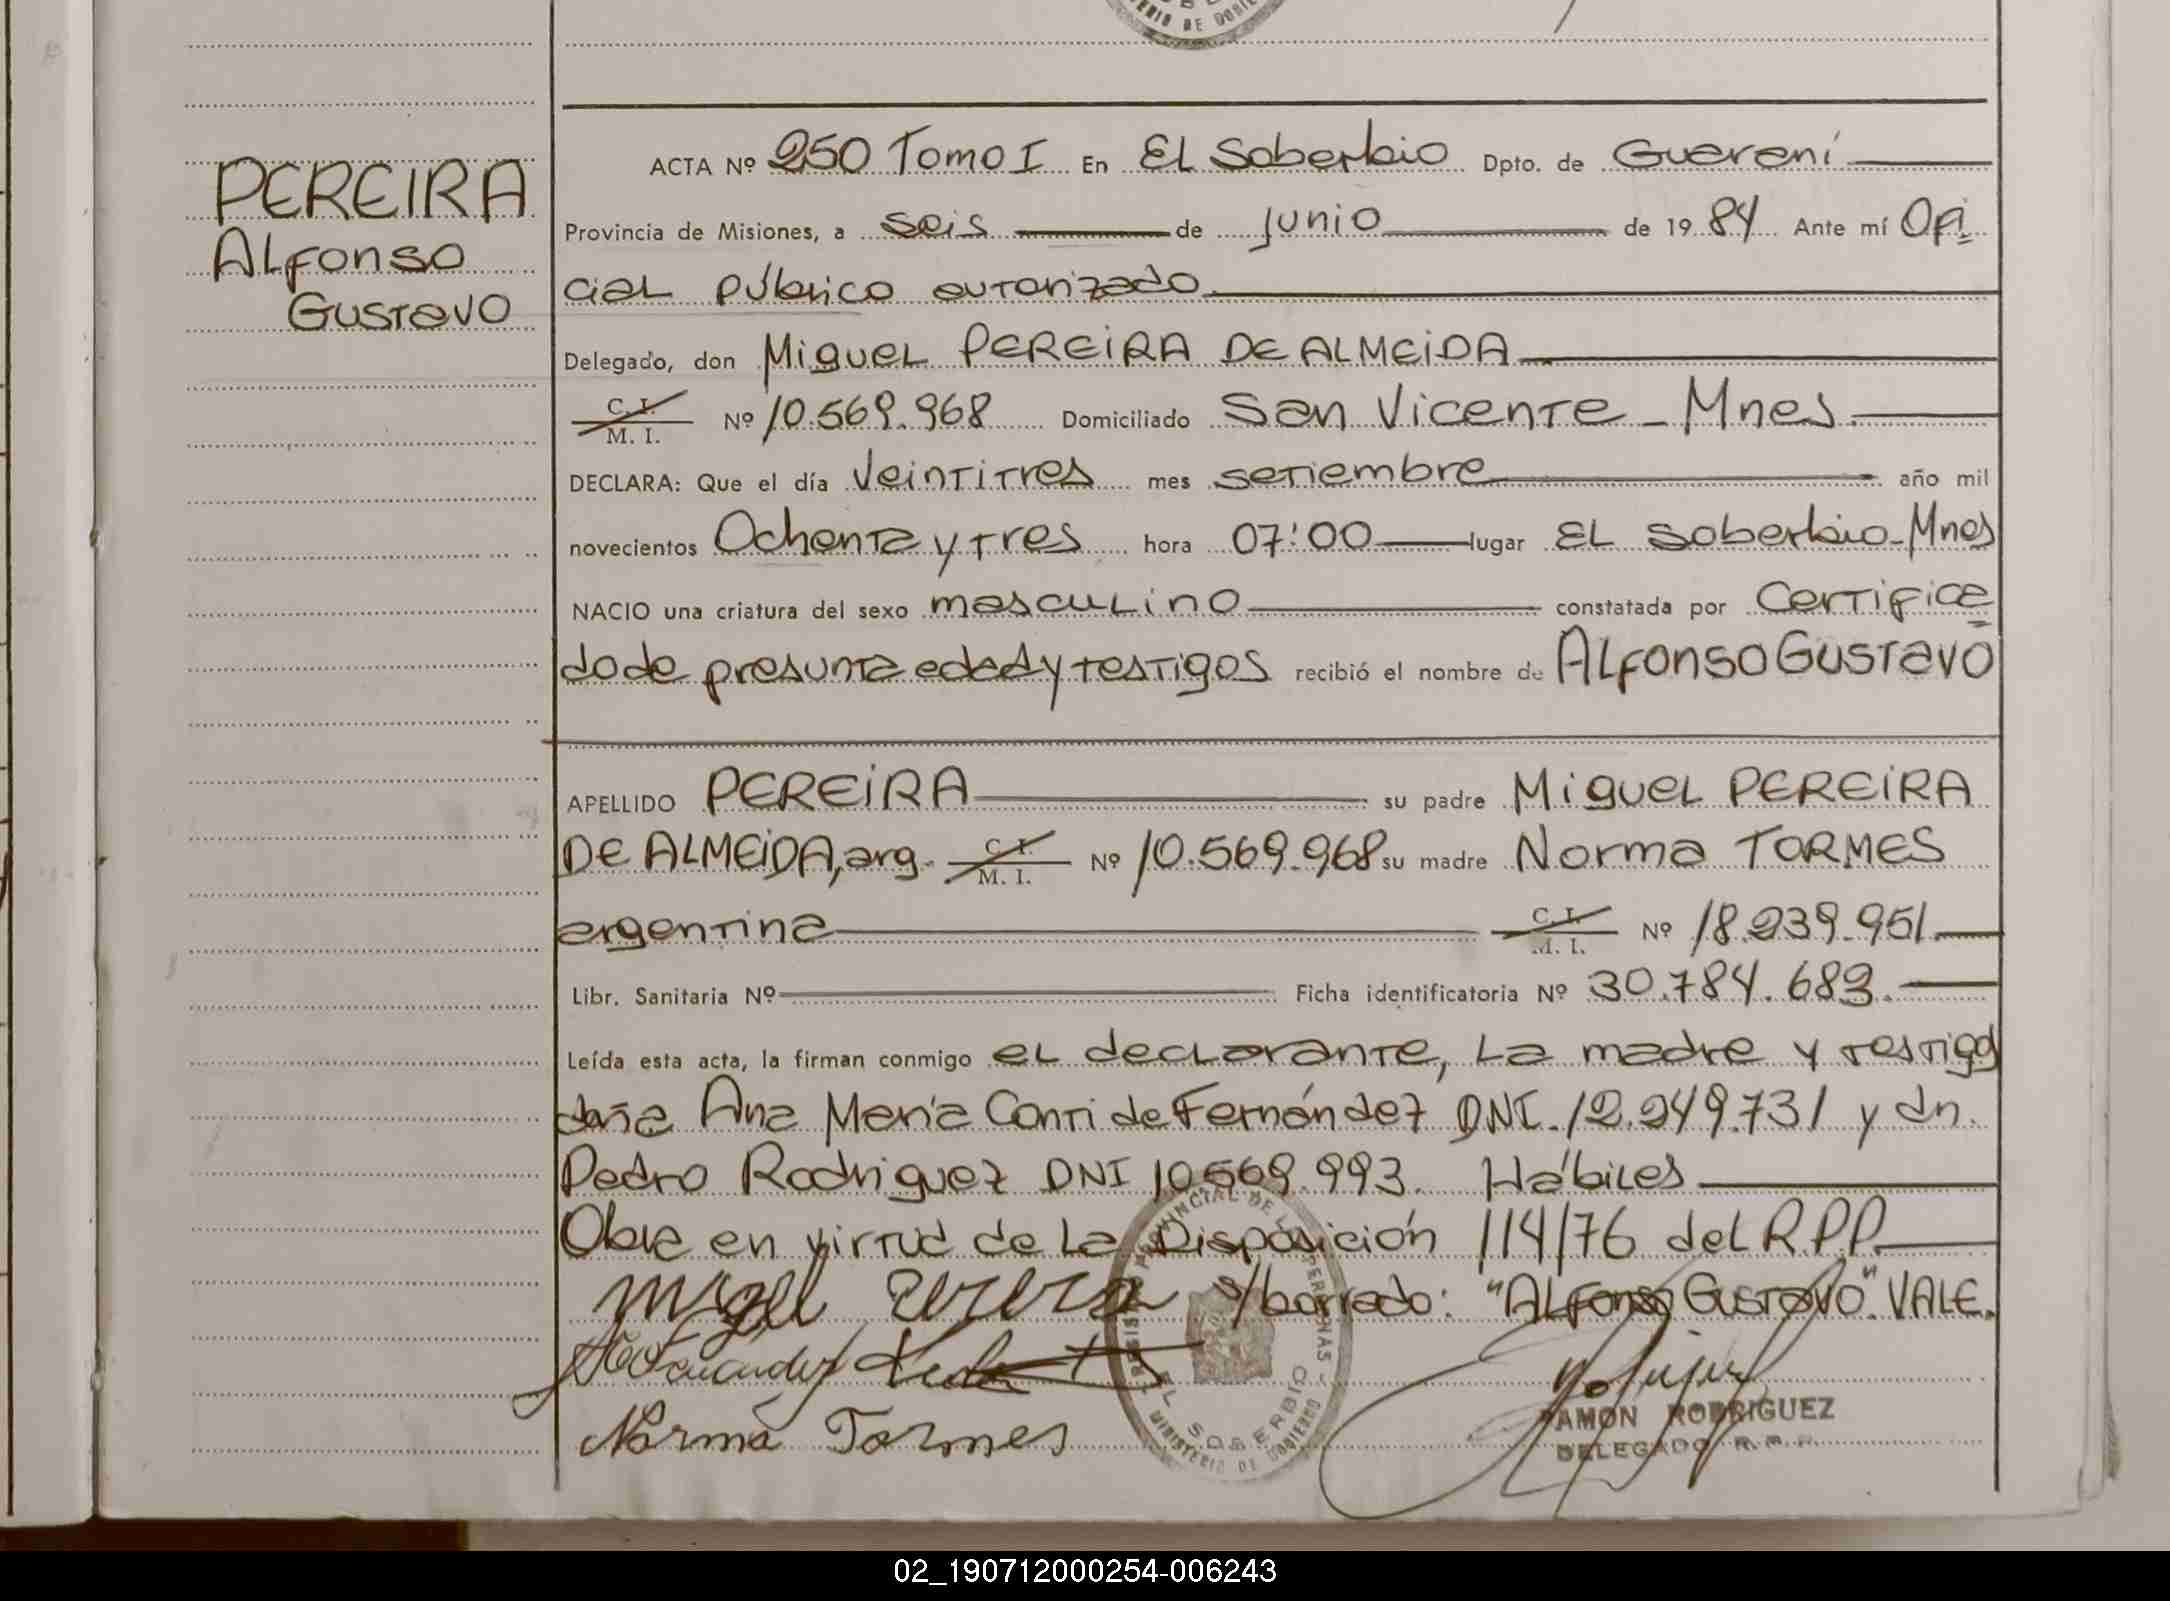 MINISTERIO DE GOBIERNO
PEREIRA
Alfonso
Gustavo
ACTA Nº 250 Tomo I En El Soberbio Dpto. de Guaraní
Provincia de Misiones, a seis de junio de 1984 Ante mí Ofi
cial público autorizado
Delegado, don Miguel PEREIRA DE ALMEIDA
C. I.
M. I. Nº 10.569.968 Domiciliado San Vicente - Mnes
DECLARA: Que el día veintitres mes setiembre año mil
novecientos Ochenta y tres hora 07:00 lugar El Soberbio-Mnes
NACIO una criatura del sexo masculino constatada por Certifica
do de presunta edad y testigos recibió el nombre de Alfonso Gustavo
APELLIDO PEREIRA su padre Miguel PEREIRA
DE ALMEIDA, arg. C. I. M. I. Nº 10.569.968 su madre Norma TORMES
argentina C. I. M. I. Nº 18.239.951
Libr. Sanitaria Nº Ficha identificatoria Nº 30.784.689.
Leída esta acta, la firman conmigo el declarante, la madre y testigos
doña Ana María Conti de Fernández DNI. 12.249.731 y dn.
Pedro Rodriguez DNI 10.569.993. Hábiles
Obra en virtud de la Disposición 114/76 del R.P.P.
Migel Pereira s/borrado: "Alfonso Gustavo". VALE.
Norma Tormes
REGISTRO PROVINCIAL DE LAS PERSONAS
EL SOBERBIO
MINISTERIO DE GOBIERNO
RAMON RODRIGUEZ
DELEGADO R.P.P.
02_190712000254-006243